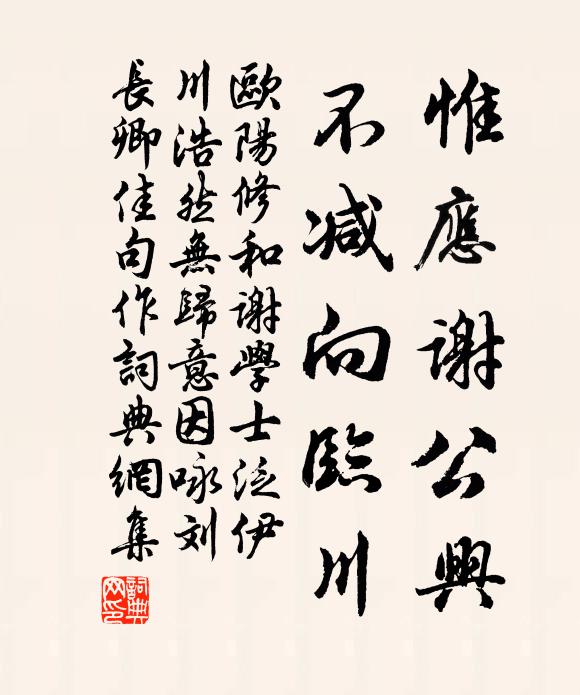 惟應謝公興
不減向臨川
歐陽修和謝學士泛伊
川浩然無歸意因咏刘
長卿佳句作詞典網集
詞典
网印